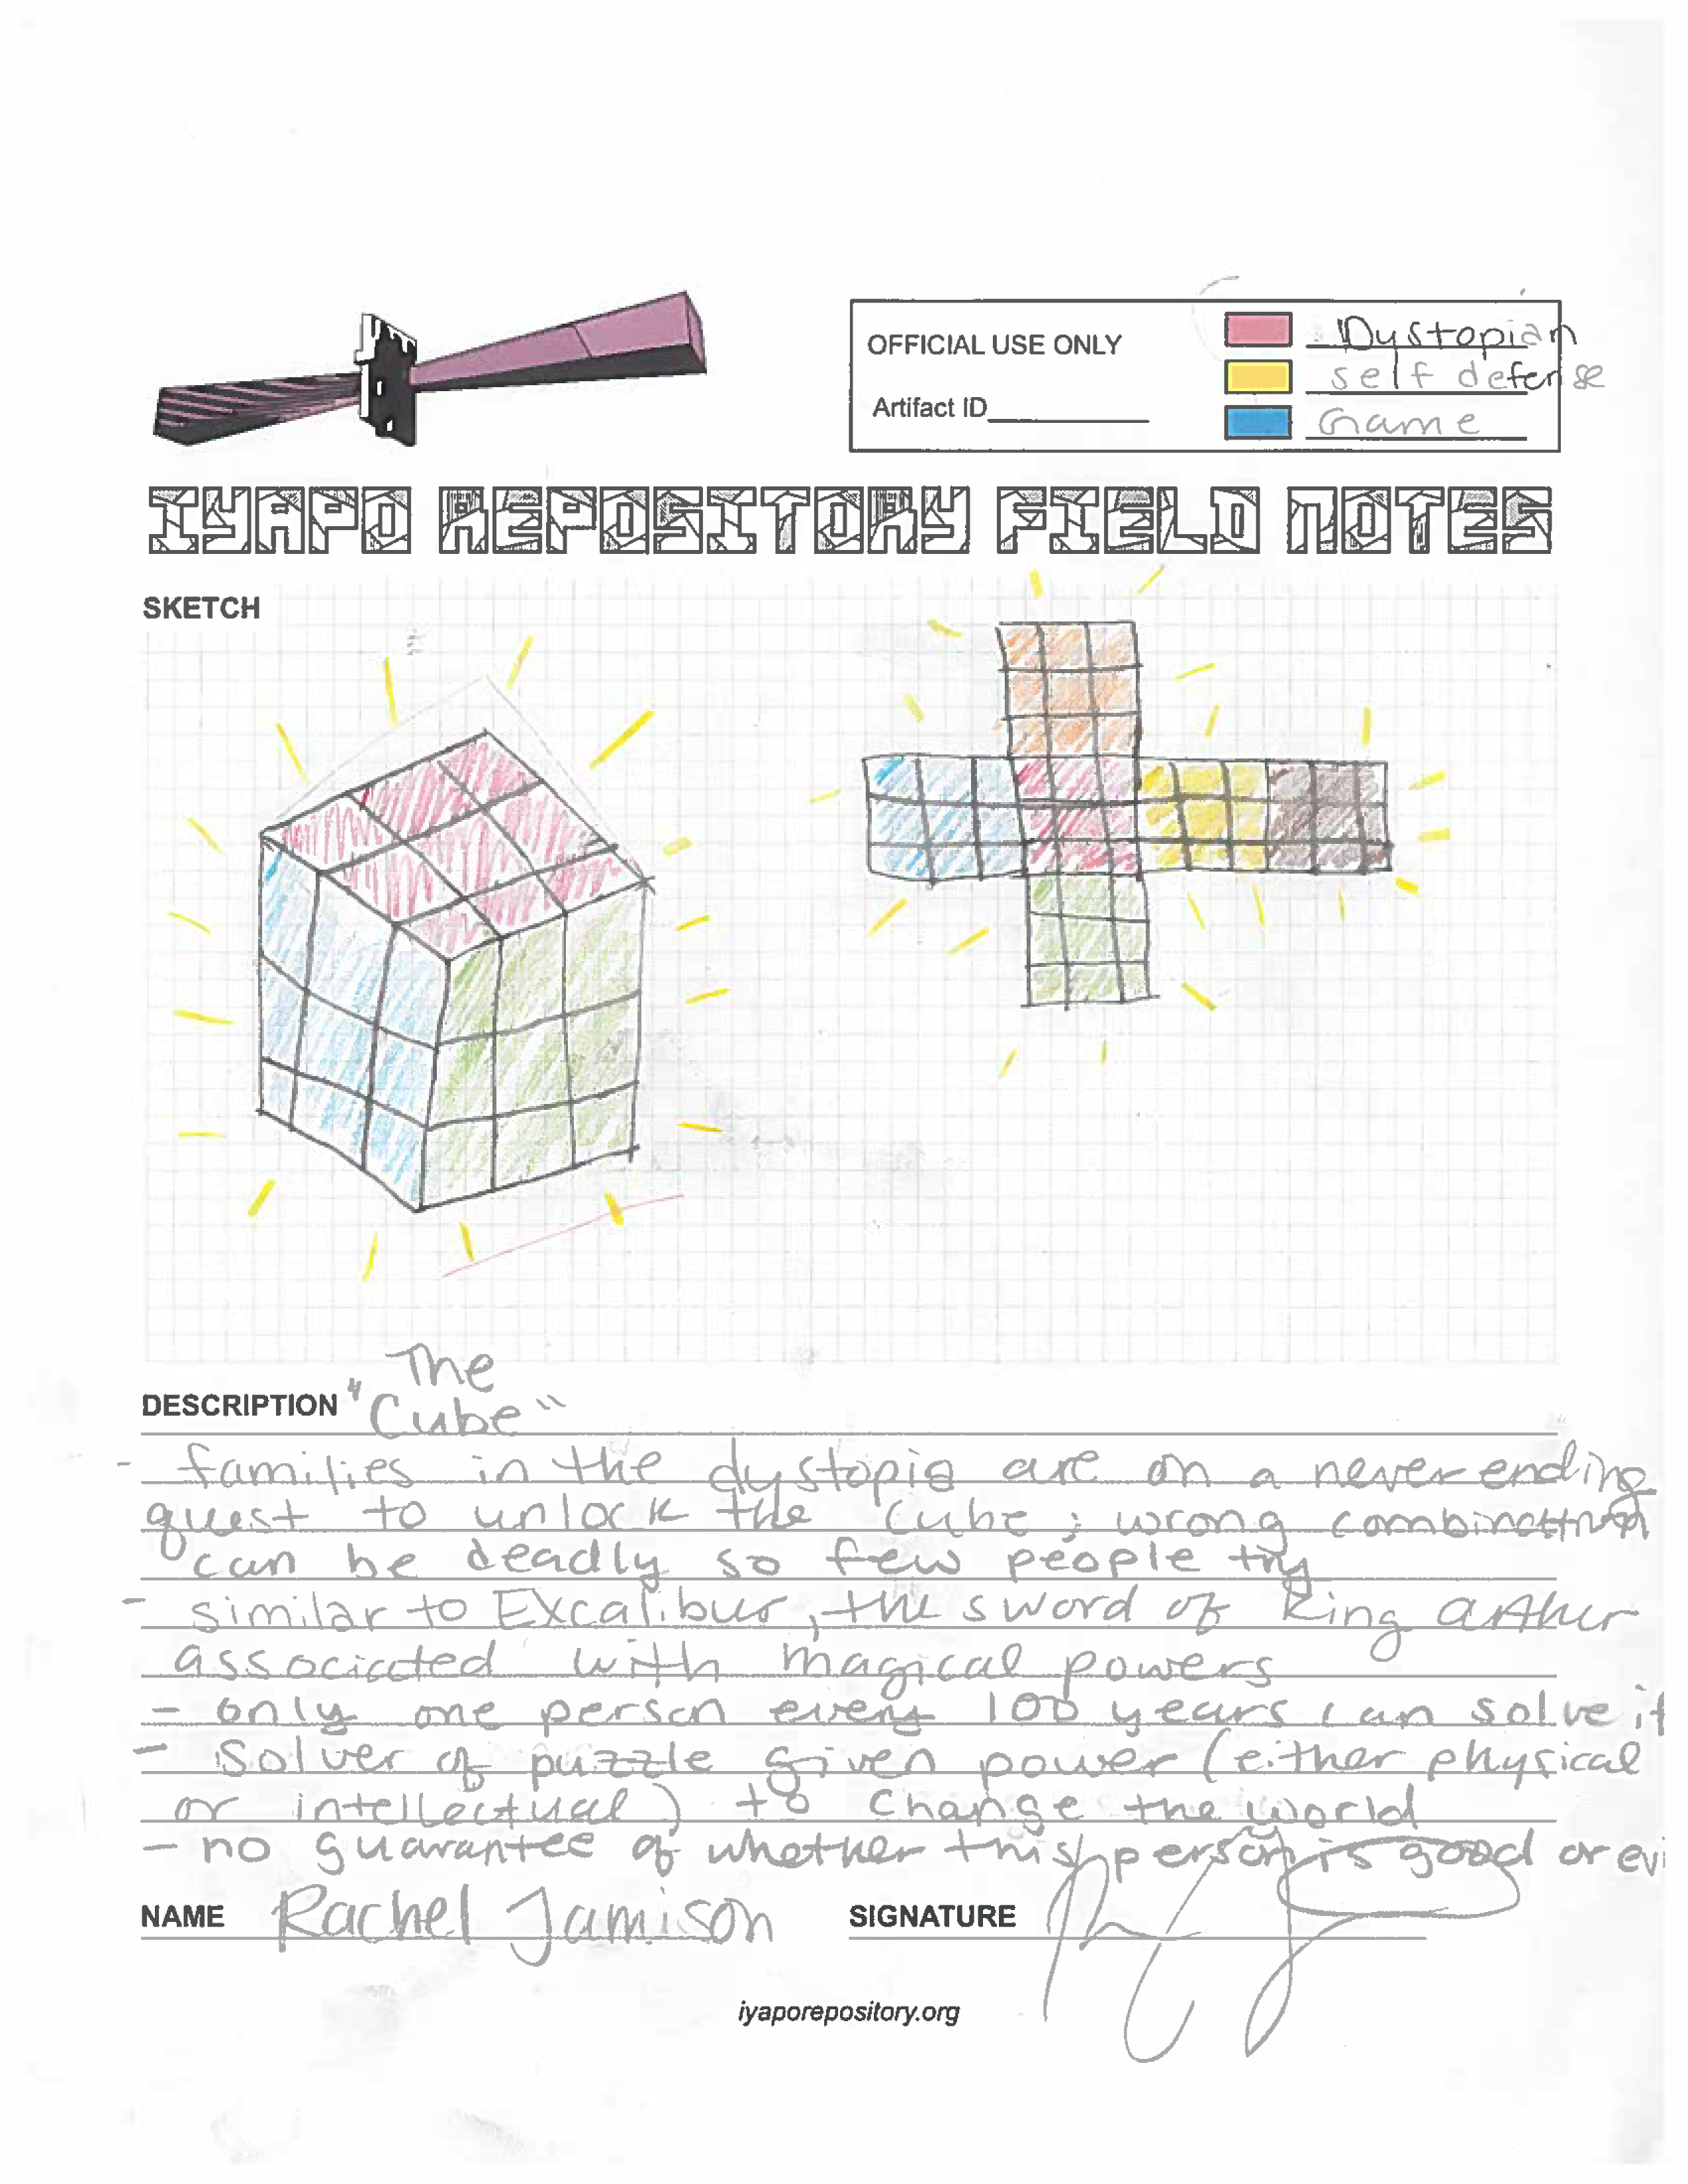 OFFICIAL USE ONLY
Artifact ID
Dystopian
self defense
Game
IYAPO REPOSITORY FIELD NOTES
SKETCH
DESCRIPTION "The
Cube"
- families in the dystopia are on a never ending
quest to unlock the cube; wrong combination
can be deadly so few people try
- similar to Excalibur, the sword of King Arthur
associated with magical powers
- only one person every 100 years can solve it
- Solver of puzzle given power (either physical
or intellectual) to change the world
- no guarantee of whether this person is good or evi
NAME Rachel Jamison SIGNATURE
iyaporepository.org